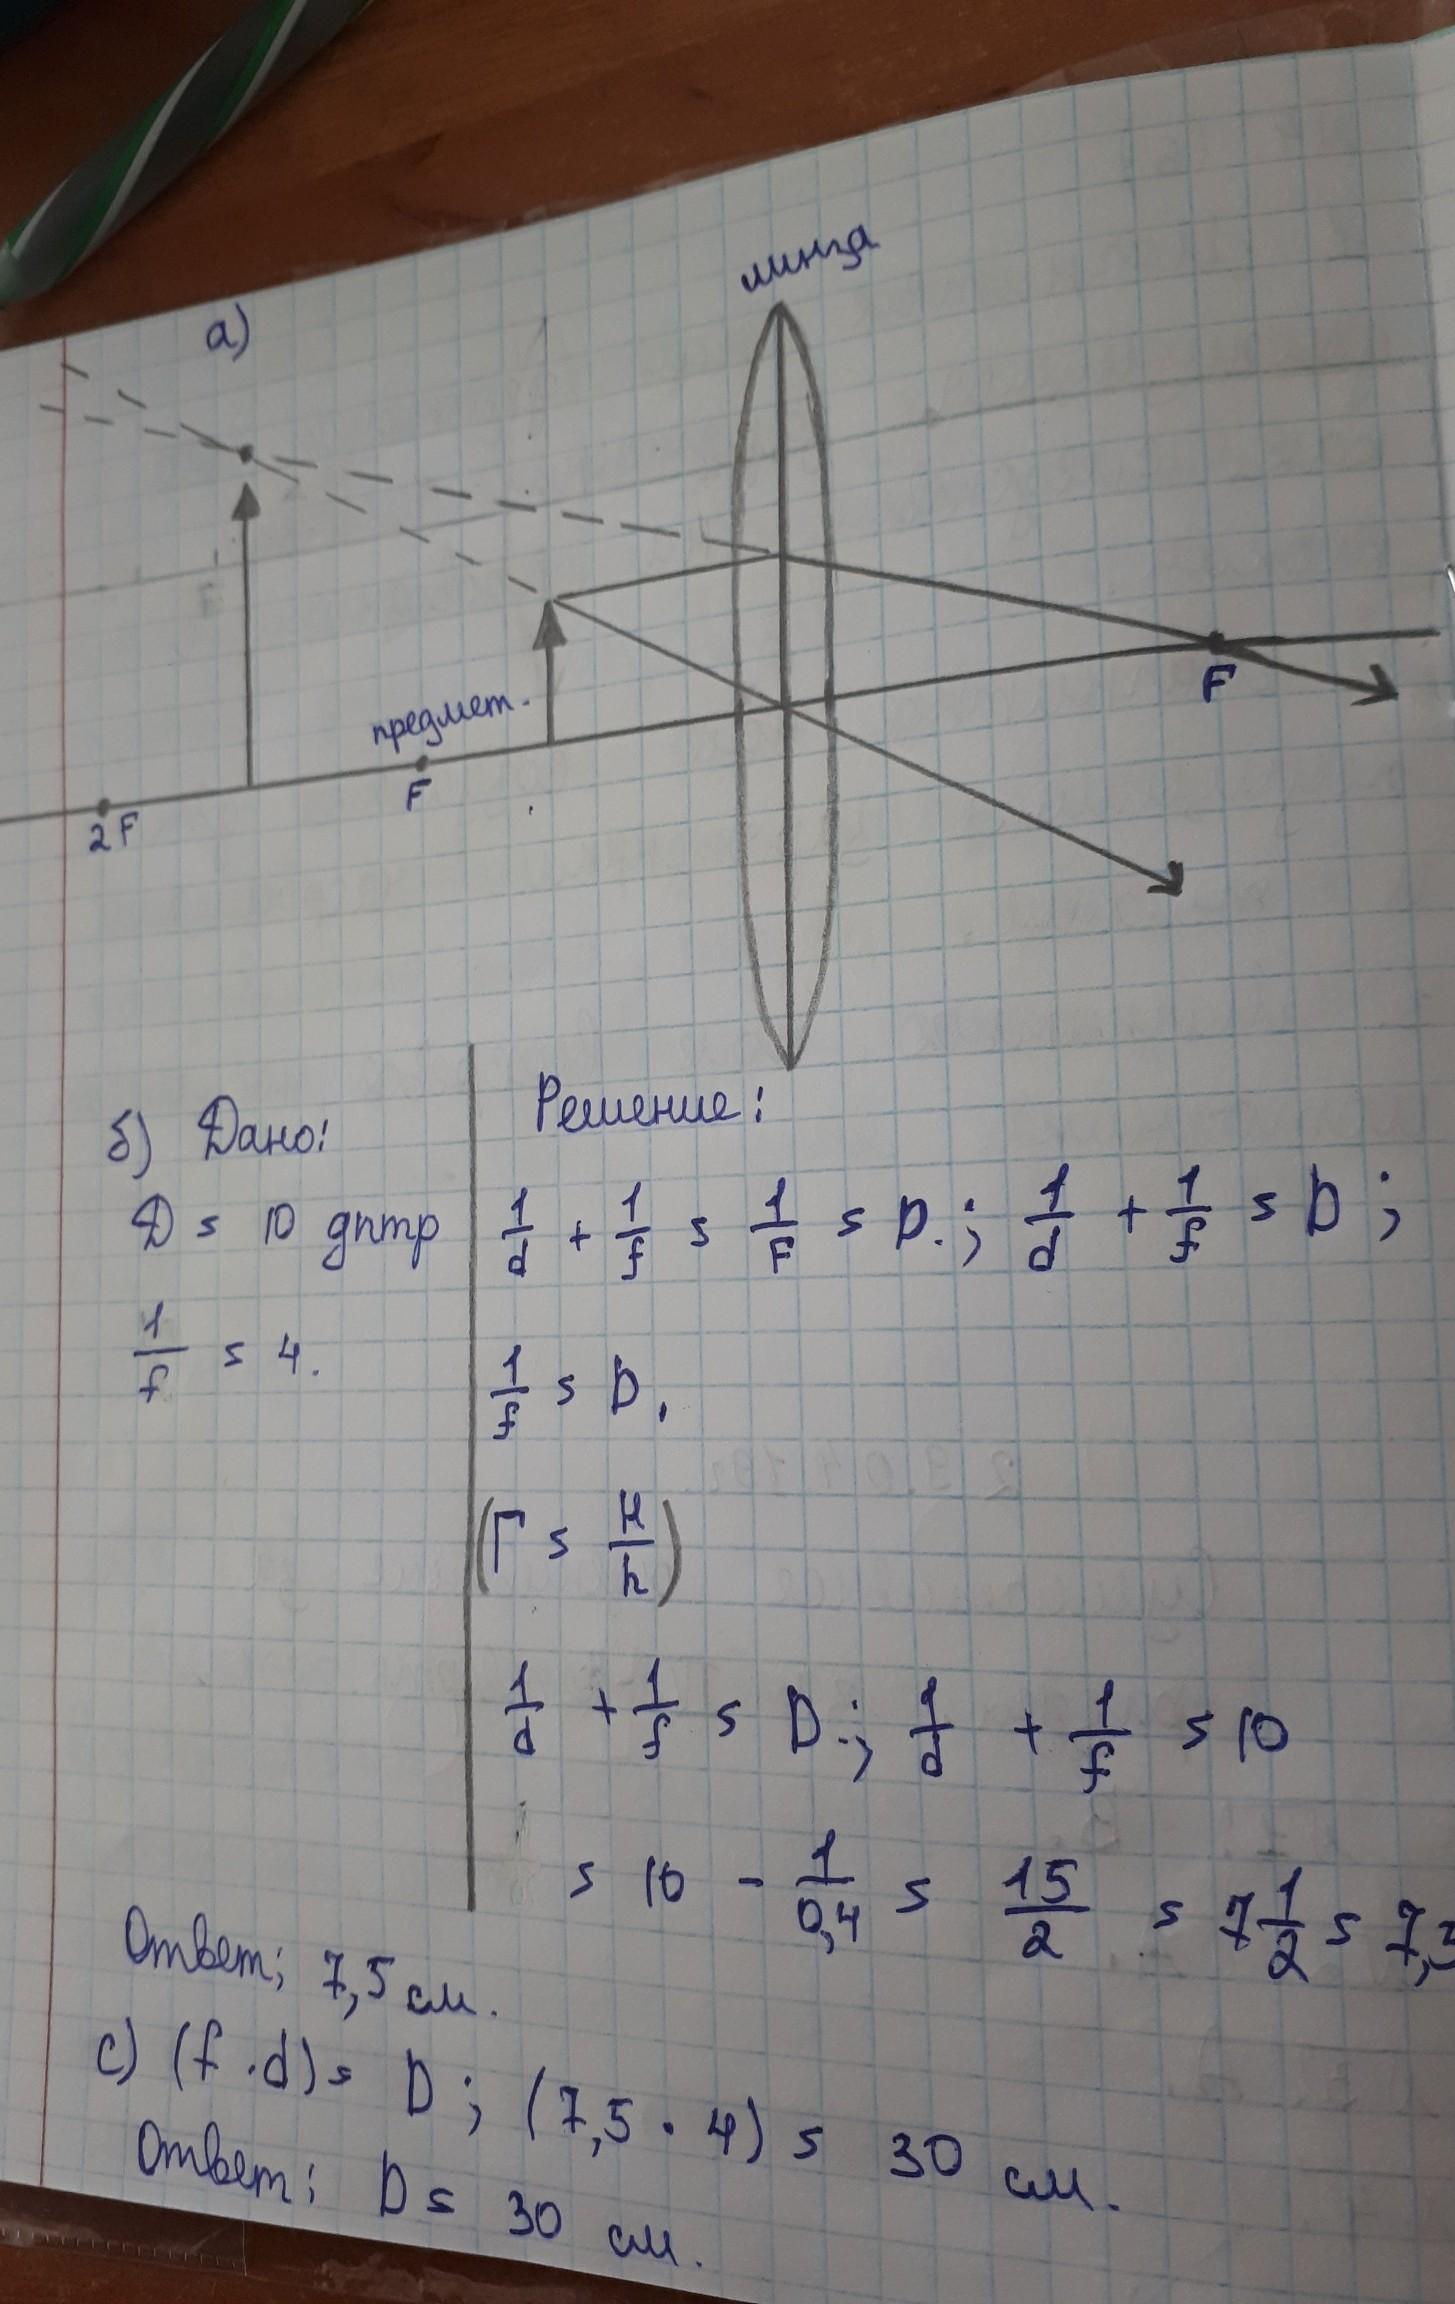 линза
а)
предмет.
F
F
2F
б) Дано:
D = 10 дптр
1/f = 4.
Решение:
1/d + 1/f = 1/F = D.; 1/d + 1/f = D;
1/f = D.
(Г = H/h)
1/d + 1/f = D.; 1/d + 1/f = 10
= 10 - 1/0,4 = 15/2 = 7 1/2 = 7,5
Ответ; 7,5 см.
с) (f · d) = D; (7,5 · 4) = 30 см.
Ответ: D = 30 см.